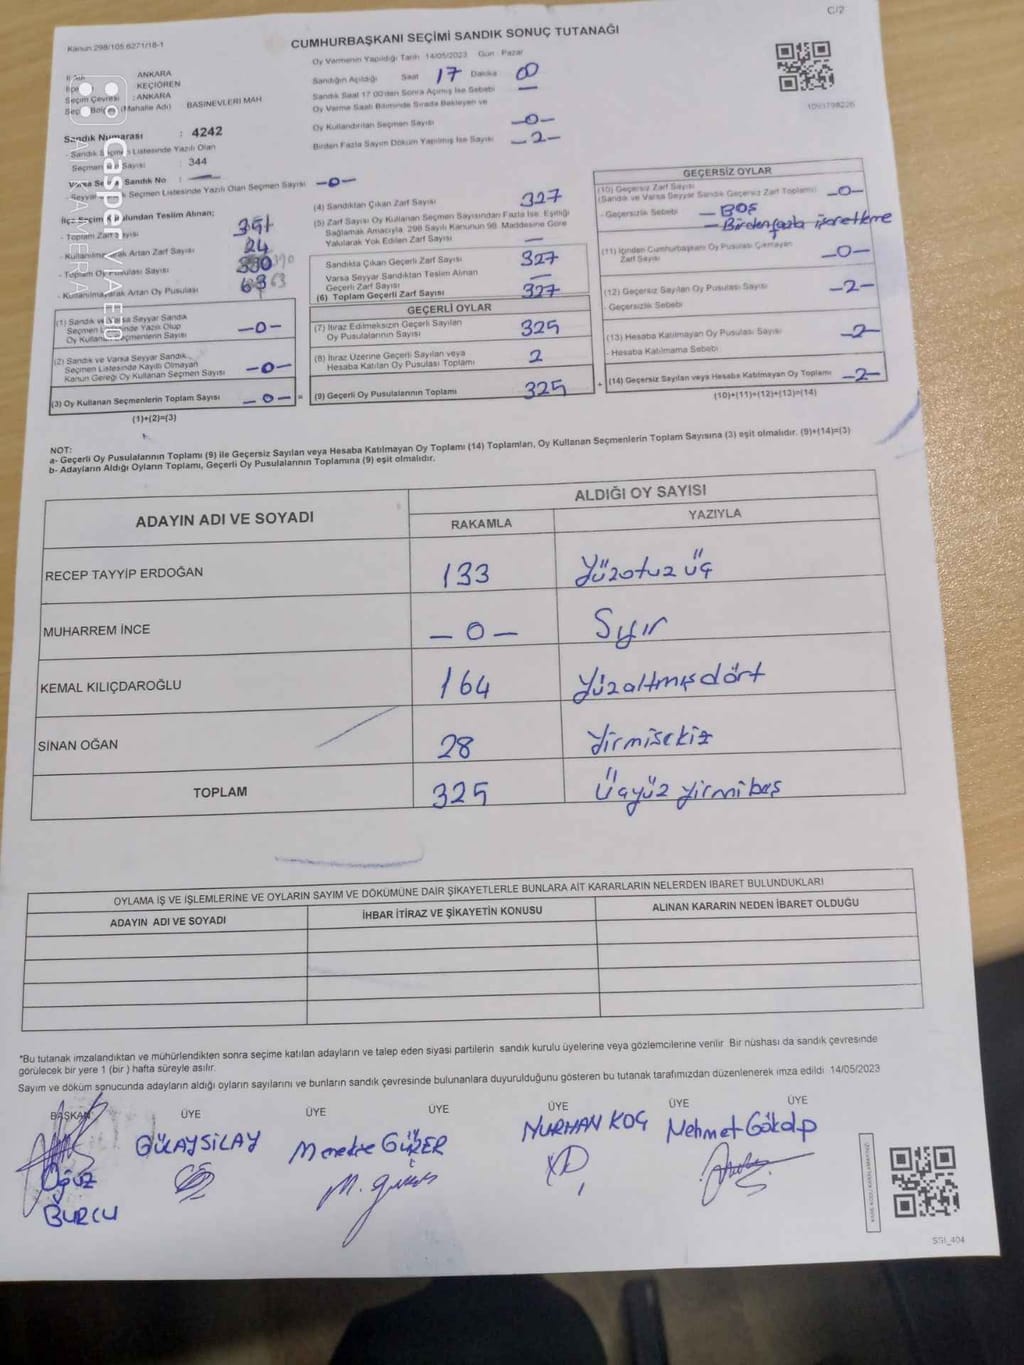 C/2
Kanun 298/105 6271/18-1
CUMHURBAŞKANI SEÇİMİ SANDIK SONUÇ TUTANAĞI
Oy Vermenin Yapıldığı Tarih 14/05/2023 Gün Pazar
ANKARA
KEÇİÖREN
Seçim Çevresi : ANKARA
(Mahalle Adı) BASINEVLERİ MAH
Sandığın Açıldığı Saat 17 Dakika 00
Sandık Saat 17 00'den Sonra Açılmış İse Sebebi —
Oy Verme Saati Bitiminde Sırada Bekleyen ve
Oy Kullandırılan Seçmen Sayısı —0—
Birden Fazla Sayım Döküm Yapılmış İse Sayısı —2—
Sandık Numarası : 4242
- Sandık Seçmen Listesinde Yazılı Olan
Seçmen Sayısı : 344
Varsa Seyyar Sandık No : —
- Seyyar Seçmen Listesinde Yazılı Olan Seçmen Sayısı —0—
İlçe Seçim Kurulundan Teslim Alınan;
- Toplam Zarf Sayısı 351
- Kullanılmayarak Artan Zarf Sayısı 24
- Toplam Oy Pusulası Sayısı 390
- Kullanılmayarak Artan Oy Pusulası 63
(1) Sandık ve Varsa Seyyar Sandık
Seçmen Listesinde Yazılı Olup
Oy Kullanan Seçmenlerin Sayısı —0—
(2) Sandık ve Varsa Seyyar Sandık
Seçmen Listesinde Kayıtlı Olmayan
Kanun Gereği Oy Kullanan Seçmen Sayısı —0—
(3) Oy Kullanan Seçmenlerin Toplam Sayısı —0— =
(1)+(2)=(3)
(4) Sandıktan Çıkan Zarf Sayısı 327
(5) Zarf Sayısı Oy Kullanan Seçmen Sayısından Fazla İse, Eşitliği
Sağlamak Amacıyla, 298 Sayılı Kanunun 98. Maddesine Göre
Yakılarak Yok Edilen Zarf Sayısı —
Sandıkta Çıkan Geçerli Zarf Sayısı 327
Varsa Seyyar Sandıktan Teslim Alınan
Geçerli Zarf Sayısı —
(6) Toplam Geçerli Zarf Sayısı 327
GEÇERLİ OYLAR
(7) İtiraz Edilmeksizin Geçerli Sayılan
Oy Pusulalarının Sayısı 325
(8) İtiraz Üzerine Geçerli Sayılan veya
Hesaba Katılan Oy Pusulası Toplamı 2
(9) Geçerli Oy Pusulalarının Toplamı 325 +
GEÇERSİZ OYLAR
(10) Geçersiz Zarf Sayısı
(Sandık ve Varsa Seyyar Sandık Geçersiz Zarf Toplamı) —0—
- Geçersizlik Sebebi — BOŞ
— Birden fazla işaretleme
(11) İçinden Cumhurbaşkanı Oy Pusulası Çıkmayan
Zarf Sayısı —0—
(12) Geçersiz Sayılan Oy Pusulası Sayısı —2—
- Geçersizlik Sebebi
(13) Hesaba Katılmayan Oy Pusulası Sayısı —2—
- Hesaba Katılmama Sebebi
(14) Geçersiz Sayılan veya Hesaba Katılmayan Oy Toplamı —2—
(10)+(11)+(12)+(13)=(14)
NOT:
a- Geçerli Oy Pusulalarının Toplamı (9) ile Geçersiz Sayılan veya Hesaba Katılmayan Oy Toplamı (14) Toplamları, Oy Kullanan Seçmenlerin Toplam Sayısına (3) eşit olmalıdır. (9)+(14)=(3)
b- Adayların Aldığı Oyların Toplamı, Geçerli Oy Pusulalarının Toplamına (9) eşit olmalıdır.
ADAYIN ADI VE SOYADI
ALDIĞI OY SAYISI
RAKAMLA YAZIYLA
RECEP TAYYİP ERDOĞAN 133 Yüzotuz üç
MUHARREM İNCE —0— Sıfır
KEMAL KILIÇDAROĞLU 164 Yüzaltmışdört
SİNAN OĞAN 28 Yirmisekiz
TOPLAM 325 Üçyüz yirmibeş
OYLAMA İŞ VE İŞLEMLERİNE VE OYLARIN SAYIM VE DÖKÜMÜNE DAİR ŞİKAYETLERLE BUNLARA AİT KARARLARIN NELERDEN İBARET BULUNDUKLARI
ADAYIN ADI VE SOYADI İHBAR İTİRAZ VE ŞİKAYETİN KONUSU ALINAN KARARIN NEDEN İBARET OLDUĞU
*Bu tutanak imzalandıktan ve mühürlendikten sonra seçime katılan adayların ve talep eden siyasi partilerin sandık kurulu üyelerine veya gözlemcilerine verilir Bir nüshası da sandık çevresinde
görülecek bir yere 1 (bir ) hafta süreyle asılır.
Sayım ve döküm sonucunda adayların aldığı oyların sayılarını ve bunların sandık çevresinde bulunanlara duyurulduğunu gösteren bu tutanak tarafımızdan düzenlenerek imza edildi 14/05/2023
BAŞKAN ÜYE ÜYE ÜYE ÜYE ÜYE ÜYE
Oğuz BURCU
GÜLAY SILAY
Menekşe GÜZER
NURHAN KOÇ
Mehmet Gökalp
M. Güzer
SSI_404
Casper VIA E10
AI CAMERA